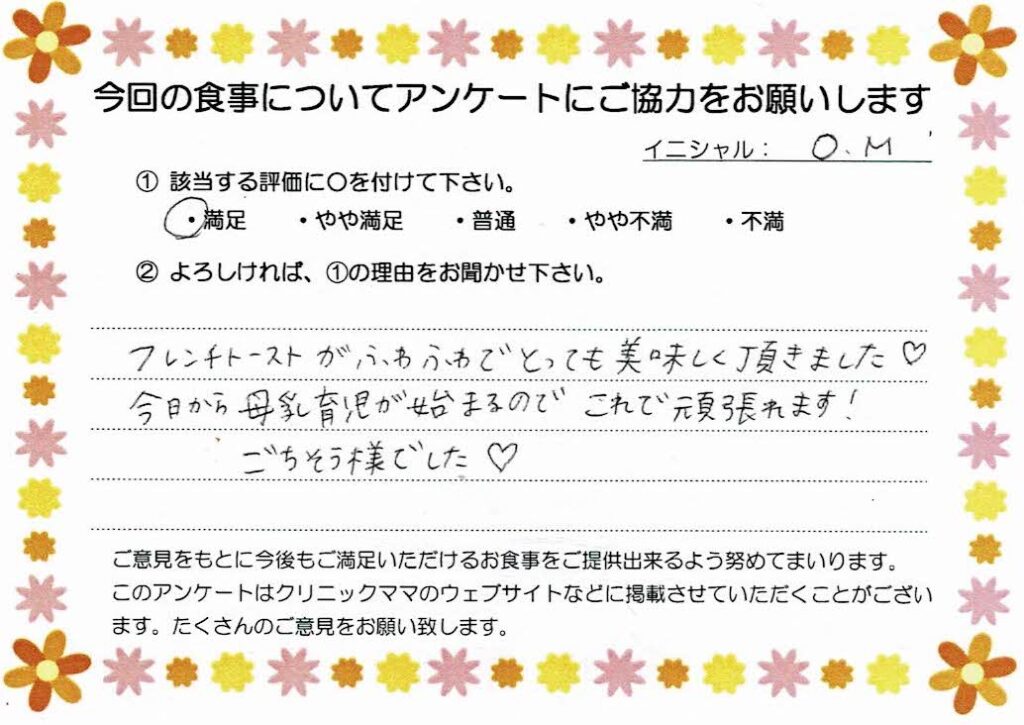 今回の食事についてアンケートにご協力をお願いします
イニシャル： O.M
① 該当する評価に○を付けて下さい。
・満足 ・やや満足 ・普通 ・やや不満 ・不満
② よろしければ、①の理由をお聞かせ下さい。
フレンチトーストがふわふわでとっても美味しく頂きました♡
今日から母乳育児が始まるので これで頑張れます！
ごちそう様でした♡
ご意見をもとに今後もご満足いただけるお食事をご提供出来るよう努めてまいります。
このアンケートはクリニックママのウェブサイトなどに掲載させていただくことがござい
ます。たくさんのご意見をお願い致します。